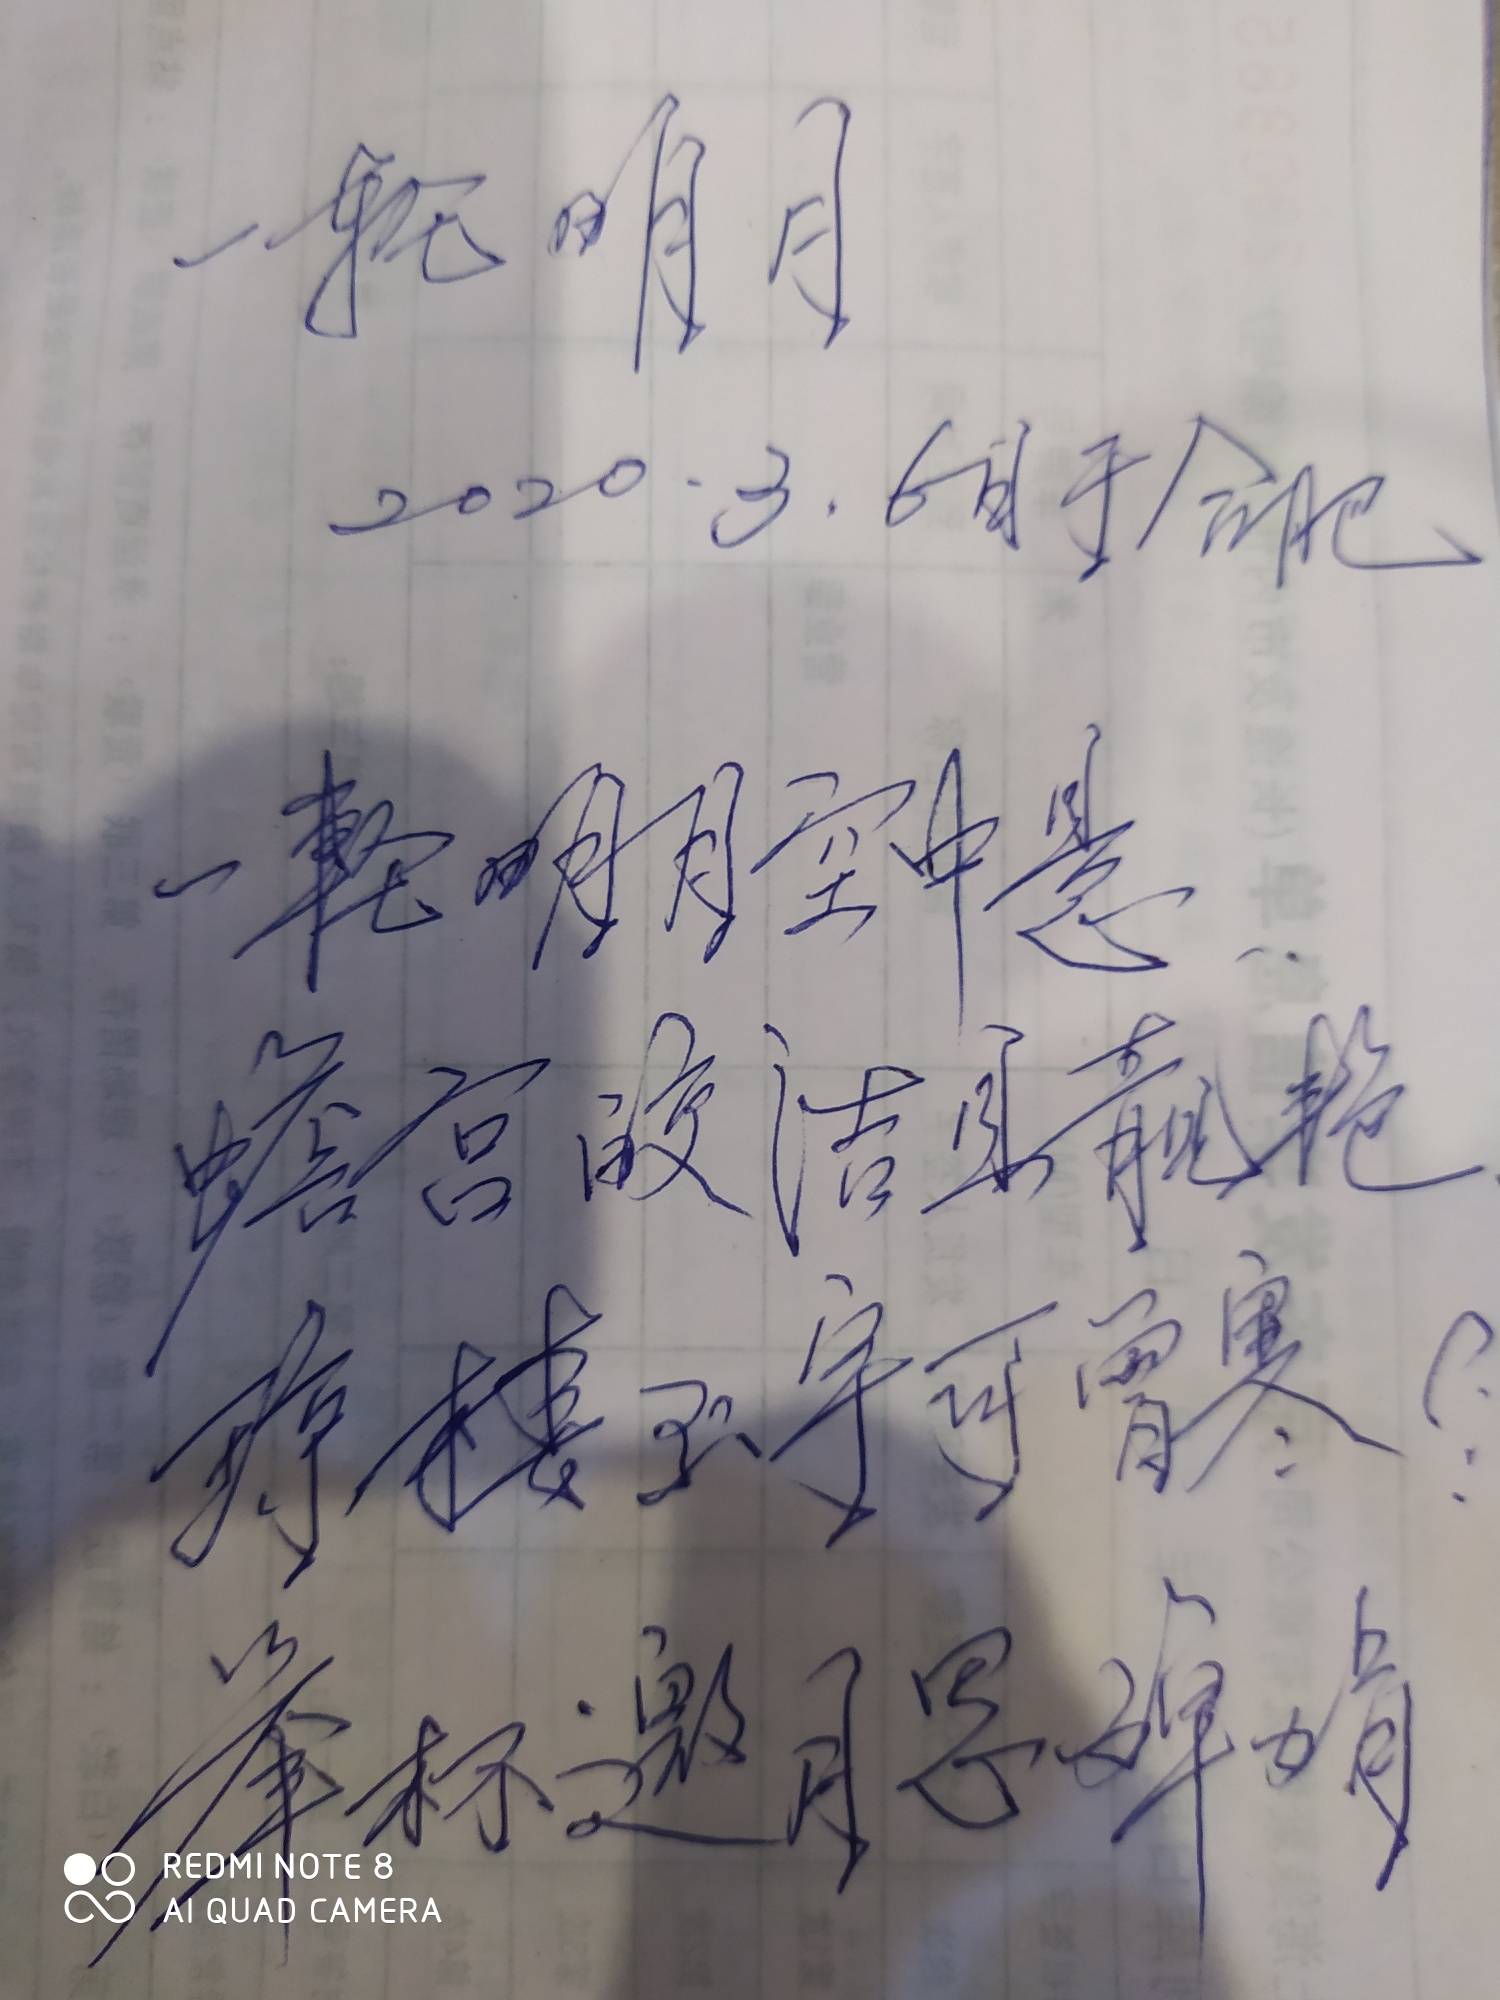 一轮明月
2020.3.6日于合肥
一轮明月空中悬
蟾宫皎洁显靓艳.
琼楼玉宇可胃寒?
举杯邀月思婵娟
REDMI NOTE 8
AI QUAD CAMERA